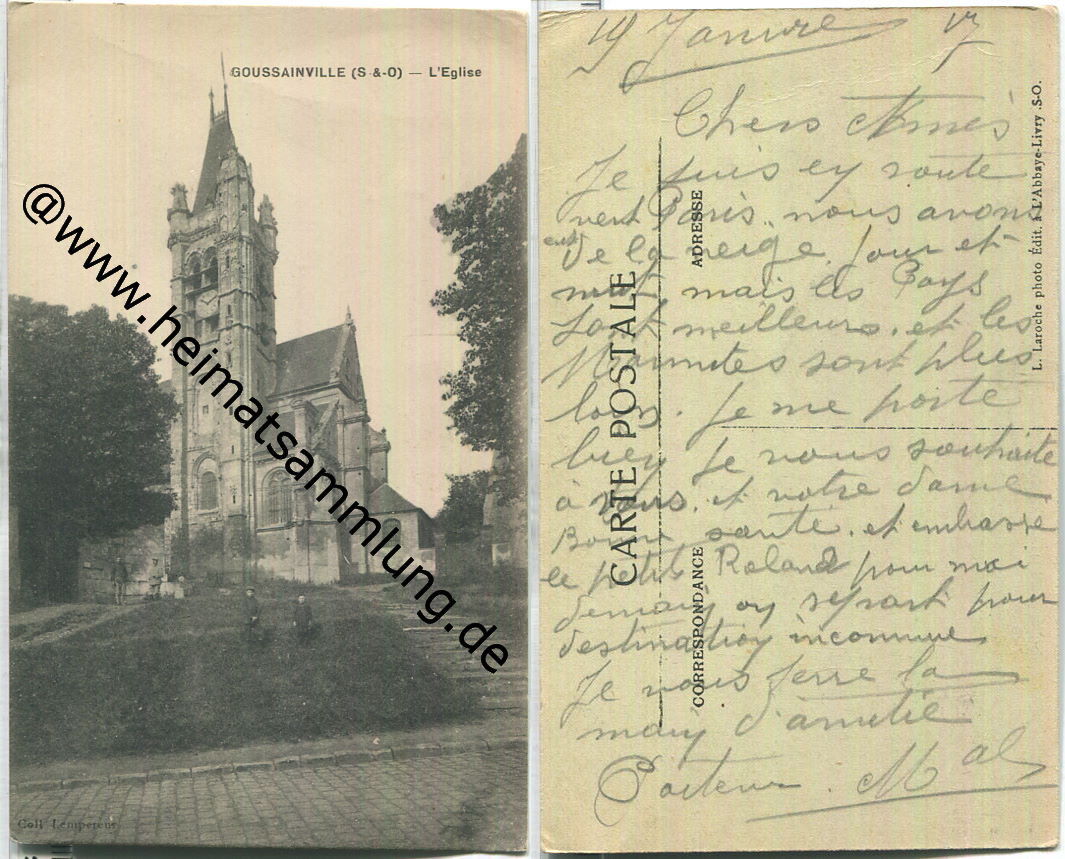 GOUSSAINVILLE (S-&-O) — L'Eglise
@www.heimatsammlung.de
Coll Lempereur
19 Janvre 17
Chers Amis
Je suis ey route
vert Paris. nous avons
eut
de la neige. jour et
nuit mais les Pays
sont meilleurs. et les
Marmites sont plus
loin. Je me porte
biey Je vous souhaite
à vous. et votre dame
Bonne santé. et embrasse
le petit Roland pour moi
demaiy oy repart pour
destinatioy inconnue
Je vous serre la
maiy d'amitié
Porteur. Mal
CARTE POSTALE
CORRESPONDANCE
ADRESSE
L. Laroche photo Édit. à L'Abbaye-Livry .S-O.